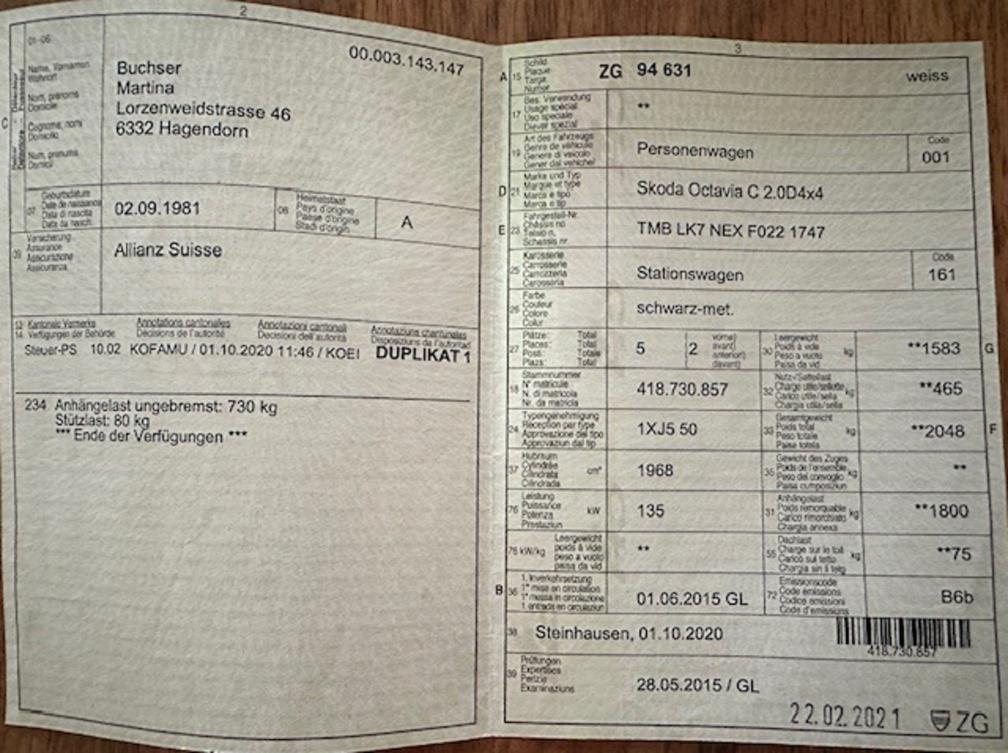 2
00.003.143.147
01-06
Name, Vornamen
Wohnort
Nom, prénoms
Domicile
Cognome, nomi
Domicilio
Num, prenums
Domicil
C
Buchser
Martina
Lorzenweidstrasse 46
6332 Hagendorn
07
Geburtsdatum
Date de naissance
Data di nascita
Data da nasch.
02.09.1981
08
Heimatstaat
Pays d'origine
Paese d'origine
Stadi d'origin
A
09
Versicherung
Assurance
Assicurazione
Assicuranza
Allianz Suisse
13 Kantonale Vermerke
14 Verfügungen der Behörde
Annotations cantonales
Décisions de l'autorité
Annotazioni cantonali
Decisioni dell'autorità
Annotaziuns chantunalas
Disposiziuns da l'autoritad
Steuer-PS 10.02 KOFAMU / 01.10.2020 11:46 / KOEI DUPLIKAT 1
234 Anhängelast ungebremst: 730 kg
Stützlast: 80 kg
*** Ende der Verfügungen ***
3
A 15
Schild
Plaque
Targa
Numer
ZG 94 631 weiss
17
Bes. Verwendung
Usage spécial
Uso speciale
Diever spezial
**
19
Art des Fahrzeugs
Genre de véhicule
Genere di veicolo
Gener dal vehichel
Personenwagen
Code
001
D 21
Marke und Typ
Marque et type
Marca e tipo
Marca e tip
Skoda Octavia C 2.0D4x4
E 23
Fahrgestell-Nr.
Châssis no
Telaio n.
Schassis nr.
TMB LK7 NEX F022 1747
25
Karosserie
Carrosserie
Carrozzeria
Carossaria
Stationswagen
Code
161
26
Farbe
Couleur
Colore
Colur
schwarz-met.
27
Plätze: Total
Places: Total
Posti: Totale
Plazs: Total
5
2
vorne)
avant)
anteriori)
davant)
30
Leergewicht
Poids à vide
Peso a vuoto
Paisa da vid
kg
**1583
G
18
Stammnummer
N° matricule
N. di matricola
Nr. da matricla
418.730.857
32
Nutz-/Sattellast
Charge utile/sellette
Carico utile/sella
Chargia utila/sella
kg
**465
24
Typengenehmigung
Réception par type
Approvazione del tipo
Approvaziun dal tip
1XJ5 50
33
Gesamtgewicht
Poids total
Peso totale
Paisa totala
kg
**2048
F
37
Hubraum
Cylindrée
Cilindrata
Cilindrada
cm³
1968
35
Gewicht des Zuges
Poids de l'ensemble
Peso del convoglio
Paisa cumposiziun
kg
**
76
Leistung
Puissance
Potenza
Prestaziun
kW
135
31
Anhängelast
Poids remorquable
Carico rimorchiato
Chargia annexa
kg
**1800
78 kW/kg
Leergewicht
poids à vide
peso a vuoto
paisa da vid
**
55
Dachlast
Charge sur le toit
Carico sul tetto
Chargia sin il tetg
kg
**75
B 36
1. Inverkehrsetzung
1re mise en circulation
1a messa in circolazione
1. entrada en circulaziun
01.06.2015 GL
72
Emissionscode
Code émissions
Codice emissioni
Code d'emissiuns
B6b
38
Steinhausen, 01.10.2020
418.730.857
39
Prüfungen
Expertises
Perizie
Examinaziuns
28.05.2015 / GL
22.02.2021 ZG